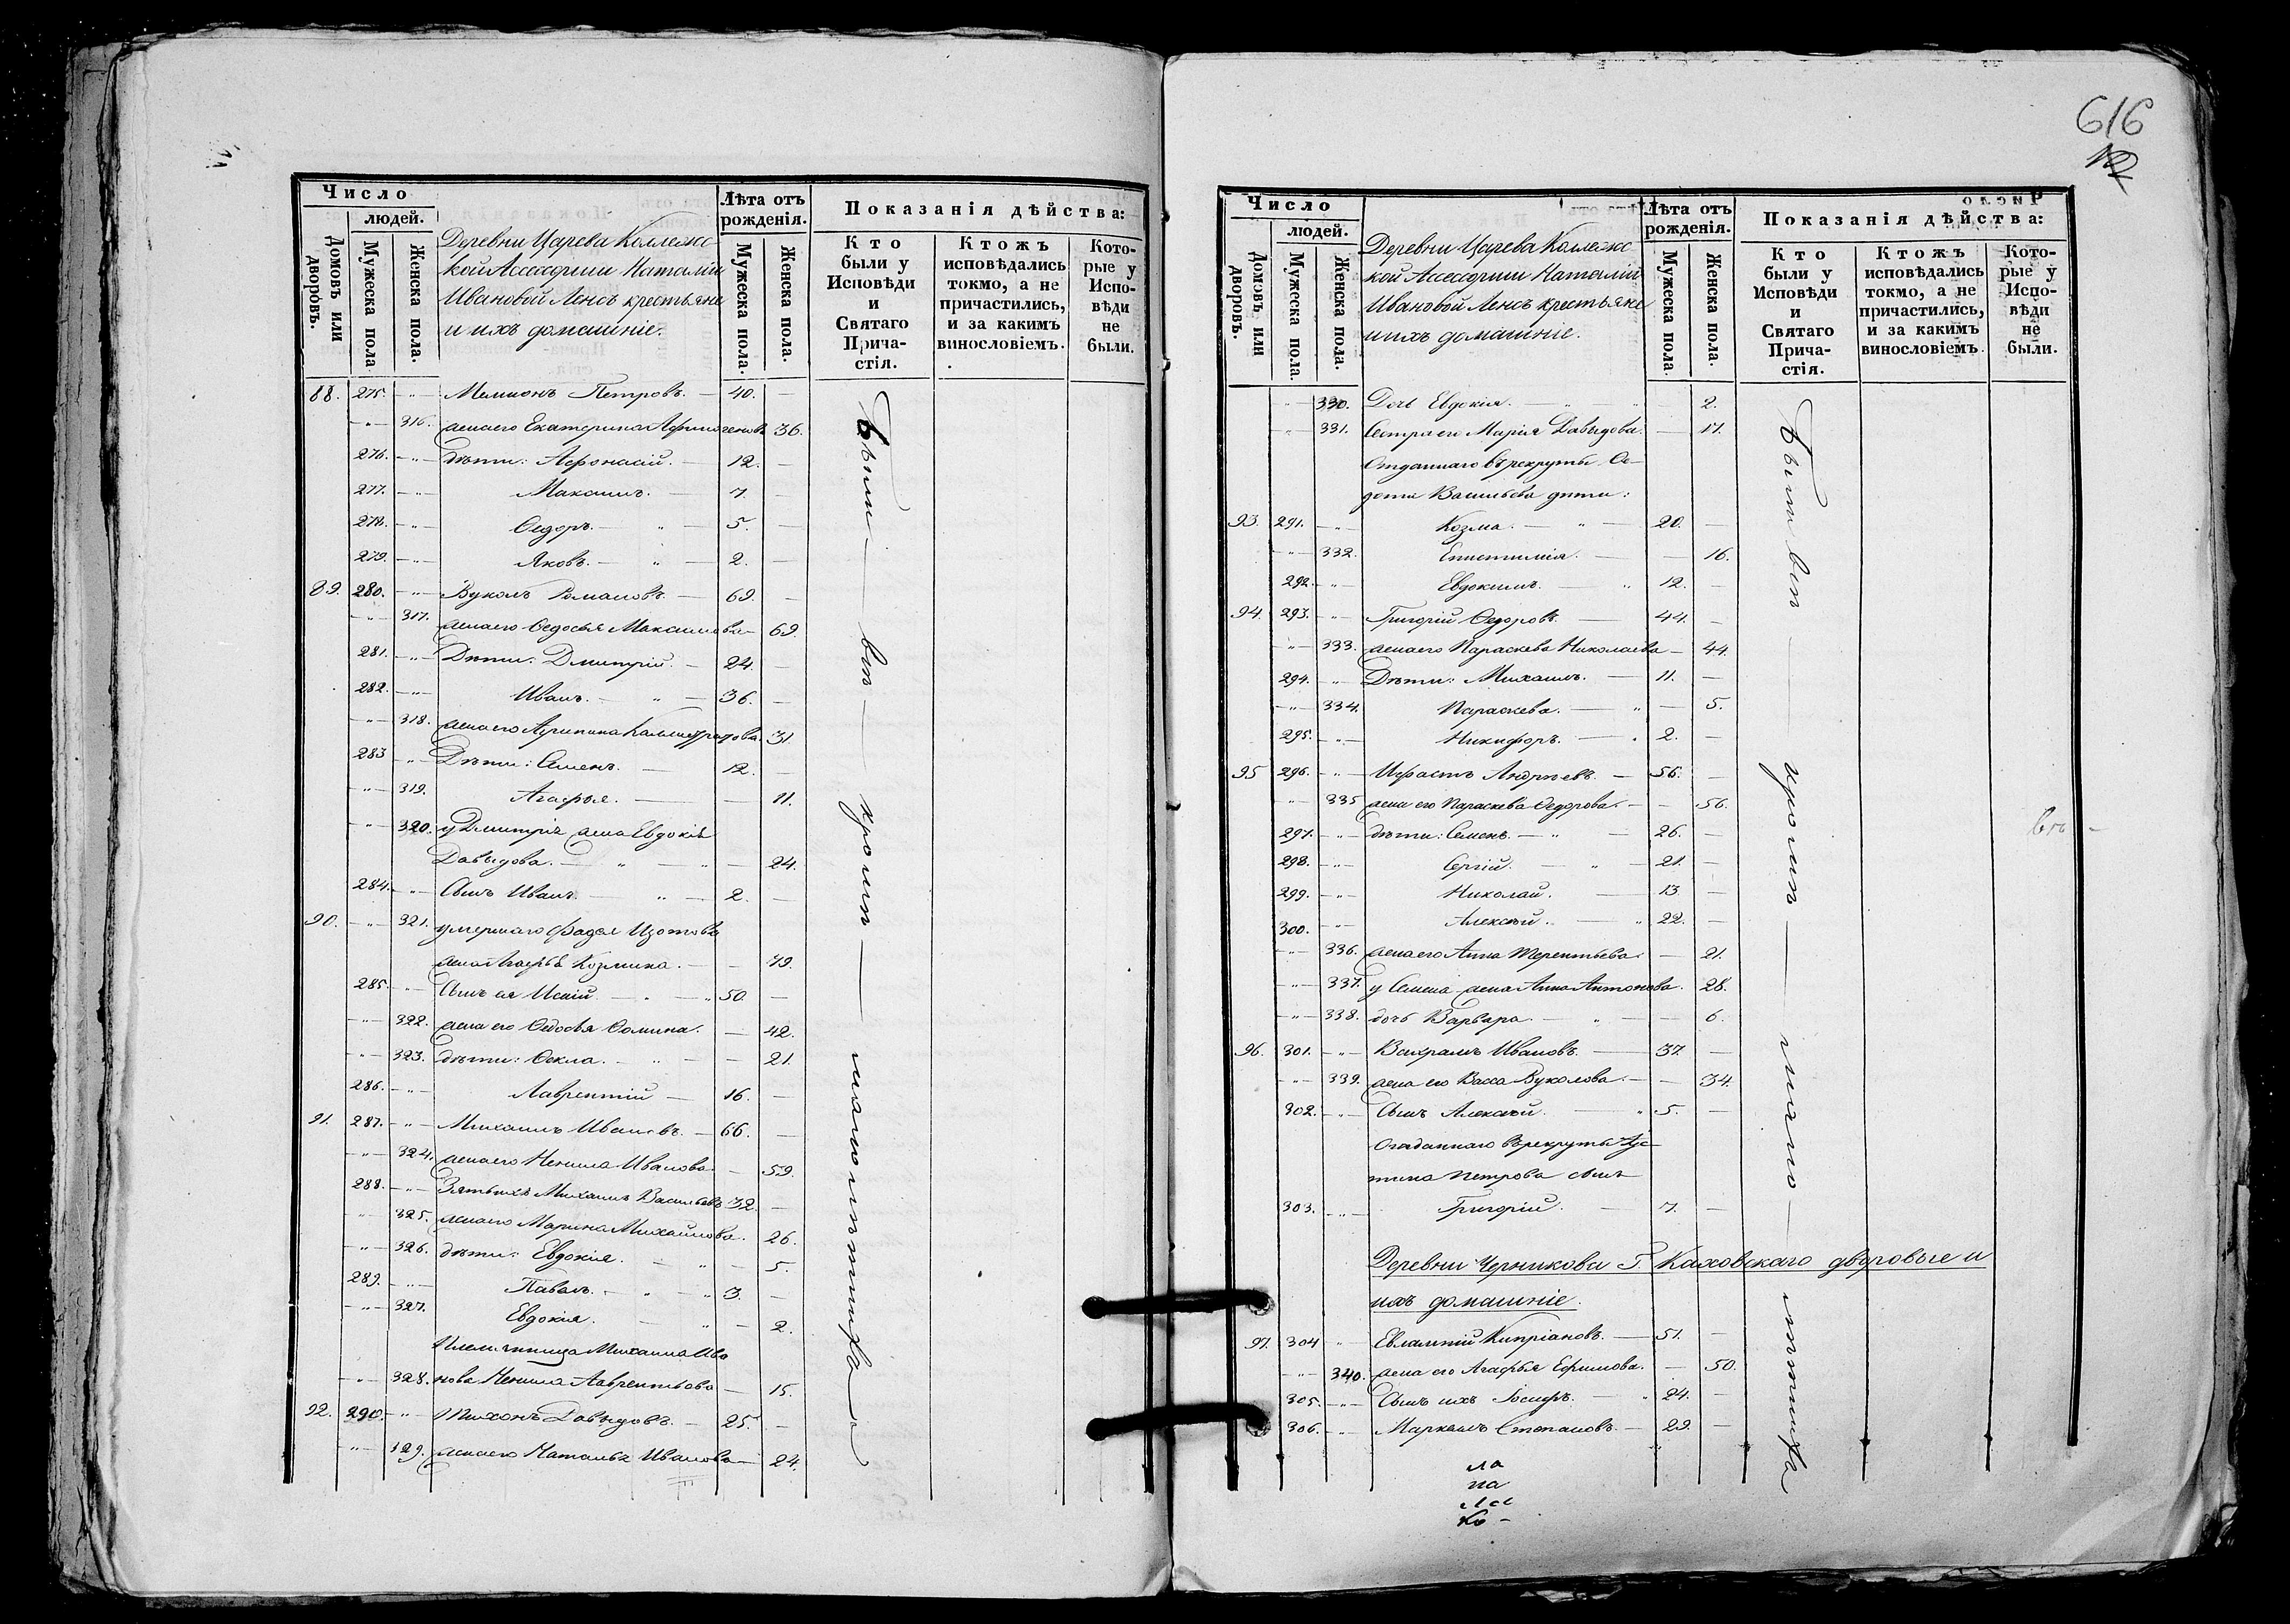 Число
людей.
Домовъ или дворовъ.
Мужеска пола
Женска пола.
Деревни Царева Коллежс
кой Ассесорши Наталiи
Ивановой Ленсъ крестьяне
и ихъ домашнiе.
Лѣта отъ рожденiя.
Мужеска пола.
Женска пола.
Показанiя дѣйства:
Кто были у Исповѣди и Святаго Причастiя.
Ктожъ исповѣдались токмо, а не причастились, и за какимъ винословiемъ.
Которые у Исповѣди не были.
88. 275. -"- Мемнонъ Петровъ. — 40. —
-"- 316. жена его Екатерина Афиногенова 36.
276. -"- дѣти: Афонасiй. — 12. —
277. -"- Максимъ. — 7. —
278. -"- Ѳедоръ. — " — 5. —
279. -"- Яковъ. — " — 2. —
89. 280. -"- Вуколъ Романовъ. — 69. —
-"- 317. жена его Ѳедосья Максимова — 69.
281. -"- Дѣти: Дмитрiй. — 24. —
282. -"- Иванъ. — " — 36. —
-"- 318. жена его Агрипина Калистратова. 31.
283 -"- Дѣти: Семенъ. — 12. —
-"- 319. Агафья. — — 11.
-"- 320. у Дмитрiя жена Евдокiя
Давыдова. — " — " — 24.
284. -"- Сынъ Иванъ. — " — 2. —
90. -"- 321. умершаго Фадея Изотова
жена Агафья Козмина. — — 79.
285. -"- Сынъ ея Исаiй. — " — " 50. —
-"- 322. жена его Ѳедосья Ѳомина. — 42.
-"- 323. дѣти: Ѳекла. — " — — 21.
286. -"- Лаврентiй — 16. —
91. 287. -"- Михаилъ Ивановъ. — 66. —
-"- 324. жена его Ненила Иванова — 59.
288. -"- Зять ихъ Михаилъ Васильевъ 32. —
-"- 325. жена его Марина Михайлова. 26.
-"- 326. дѣти: Евдокiя. — " — 5.
289. -"- Павелъ. — " — " 3. —
-"- 327. Евдокiя. — " — 2.
Племянница Михаила Ива
-"- 328. нова Ненила Лаврентьова — 15.
92. 290. -"- Тихонъ Давыдовъ. — 25. —
-"- 329. жена его Наталья Иванова — 24.
Были — вси — кромѣ — малолѣтнихъ
616
12
Число
людей.
Домовъ или дворовъ.
Мужеска пола.
Женска пола.
Деревни Царева Коллежс
кой Ассесорши Наталiи
Ивановой Ленсъ крестьяне
и ихъ домашнiе.
Лѣта отъ рожденiя.
Мужеска пола.
Женска пола.
Показанiя дѣйства:
Кто были у Исповѣди и Святаго Причастiя.
Ктожъ исповѣдались токмо, а не причастились, и за какимъ винословiемъ.
Которые у Исповѣди не были.
-"- 330. Дочь Евдокiя. — " — 2.
-"- 331. Сестра его Марiя Давыдова. — 17.
Отданнаго в рекруты Ѳе-
дота Васильева дѣти:
93. 291. -"- Козма. — " — 20. —
-"- 332. Епистимiя. — — 16.
292. -"- Евдокимъ. — " 12. —
94. 293. -"- Григорiй Ѳедоровъ. — 44. —
-"- 333. жена его Параскева Николаева — 44.
294. -"- Дѣти: Михаилъ. — 11. —
-"- 334. Параскева. — " — 5.
295. -"- Никифоръ. — " 2. —
95 296. -"- Ифастъ Андреевъ. — 56. —
-"- 335 жена его Параскева Ѳедорова. — — 56.
297. -"- дѣти: Семенъ. — " — 26. —
298. -"- Сергiй. — " — 21. —
299. -"- Николай. — 13. —
300. -"- Алексѣй. — " 22. —
-"- 336. жена его Анна Терентьева. — 21.
-"- 337. у Семена жена Анна Антонова. 28.
-"- 338. дочь Варвара. — " — — 6.
96. 301. -"- Вахрамъ Ивановъ. — 37. —
-"- 339. жена его Васса Вуколова. — — 34.
302. -"- Сынъ Алексѣй. — " 5. —
Отданнаго в рекруты Ус
тина Петрова сынъ
303. -"- Григорiй. — 7. —
Деревни Черникова Г. Каховскаго дворовые и
ихъ домашнiе.
97. 304 " Евлампiй Кипрiановъ. — 51. —
-"- 340. жена его Агафья Ефимова. — 50.
305. -"- Сынъ ихъ Iосифъ. — " 24. —
306. -"- Маркелъ Степановъ. — 29. —
Были вси — кромѣ — мало — лѣтнихъ
ла
па